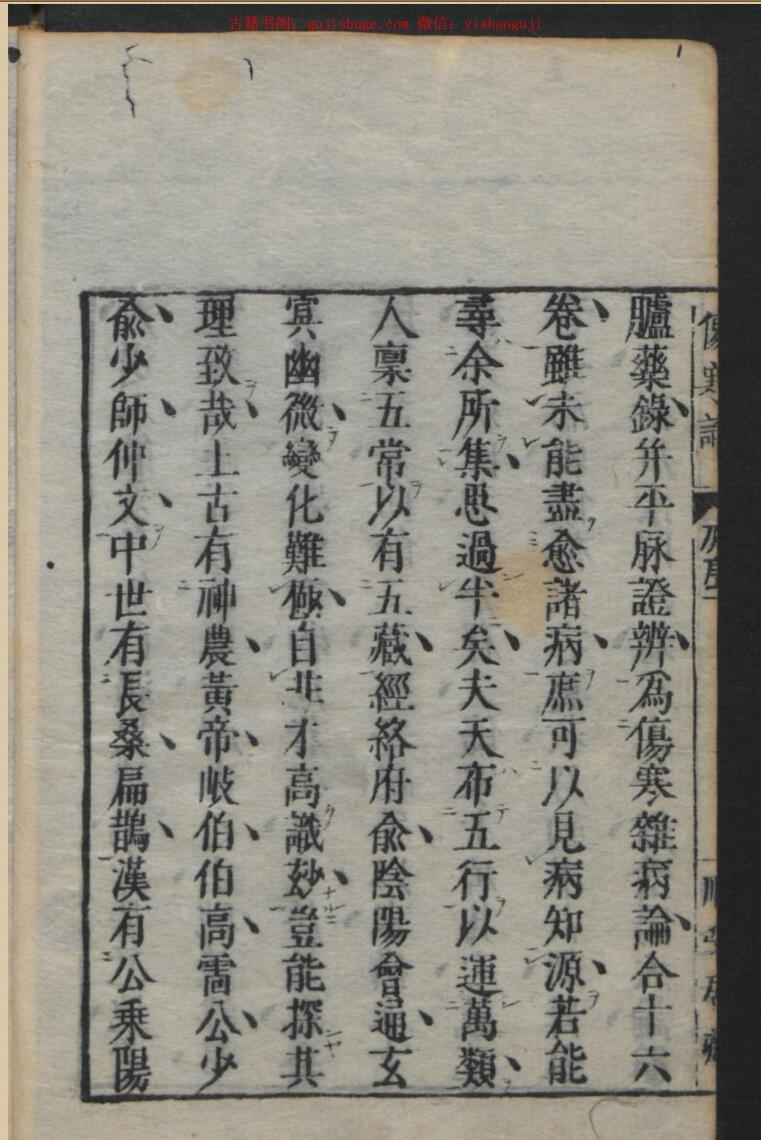 古籍书阁：gujishuge.com 微信：yishanguji
傷寒論
臚藥錄并平脉證辨爲傷寒雜病論合十六
卷雖未能盡愈諸病庶可以見病知源若能
尋余所集思過半矣夫天布五行以運萬類
人稟五常以有五藏經絡府兪陰陽會通玄
冥幽微變化難極自非才高識玅豈能探其
理致哉上古有神農黃帝岐伯伯高雷公少
兪少師仲文中世有長桑扁鵲漢有公乘陽